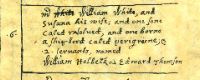 mr William White, and
Susana his wife; and one sone
caled resolved, and one borne
6. a ship-bord caled perigriene; &
2. servants, named
William Holbeck & Edward Thomson